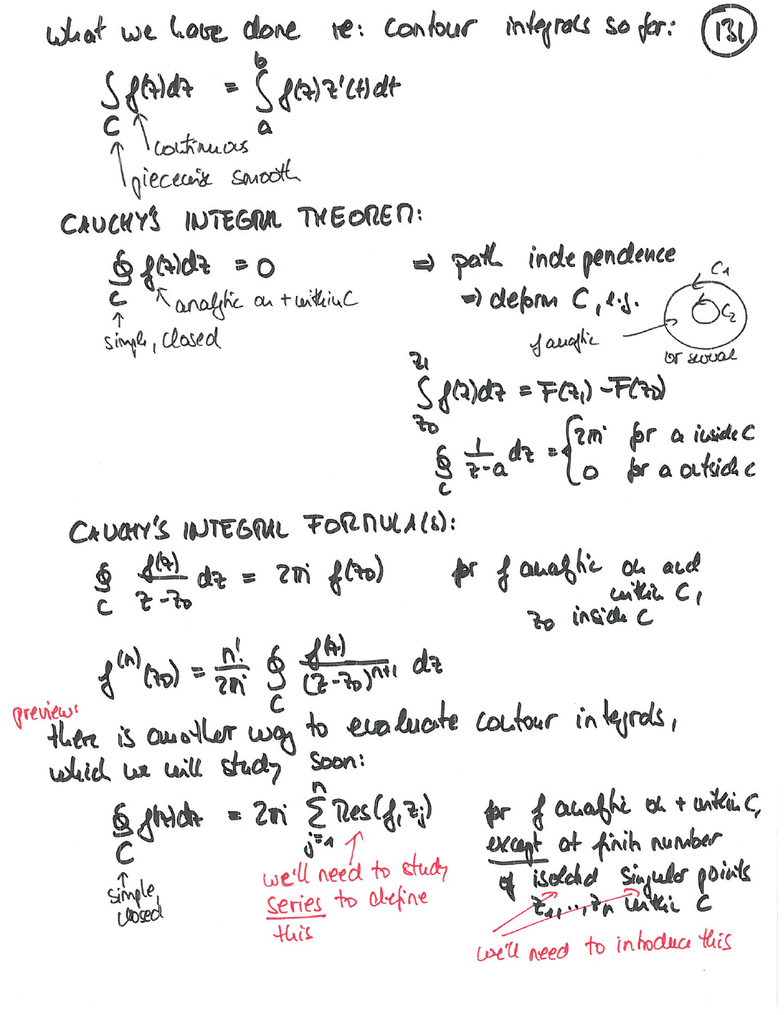 What we have done re: contour integrals so far: 131
∫_C f(z)dz = ∫_a^b f(z)z'(t)dt
continuous
piecewise smooth
CAUCHY'S INTEGRAL THEOREM:
∮_C f(z)dz = 0 ⇒ path independence
analytic on + within C
simple, closed
⇒ deform C, e.g.
C1
C2
f analytic
or several
∫_{z0}^{z1} f(z)dz = F(z1) - F(z0)
∮_C 1/(z-a) dz = { 2πi for a inside C
0 for a outside C
CAUCHY'S INTEGRAL FORMULA(S):
∮_C f(z)/(z-z0) dz = 2πi f(z0) for f analytic on and
within C,
z0 inside C
f^(n)(z0) = n!/(2πi) ∮_C f(z)/(z-z0)^(n+1) dz
preview:
there is another way to evaluate contour integrals,
which we will study soon:
∮_C f(z)dz = 2πi Σ_{j=1}^n Res(f, zj) for f analytic on + within C,
except at finite number
of isolated singular points
z1, ..., zn within C
simple,
closed
we'll need to study
series to define
this
we'll need to introduce this